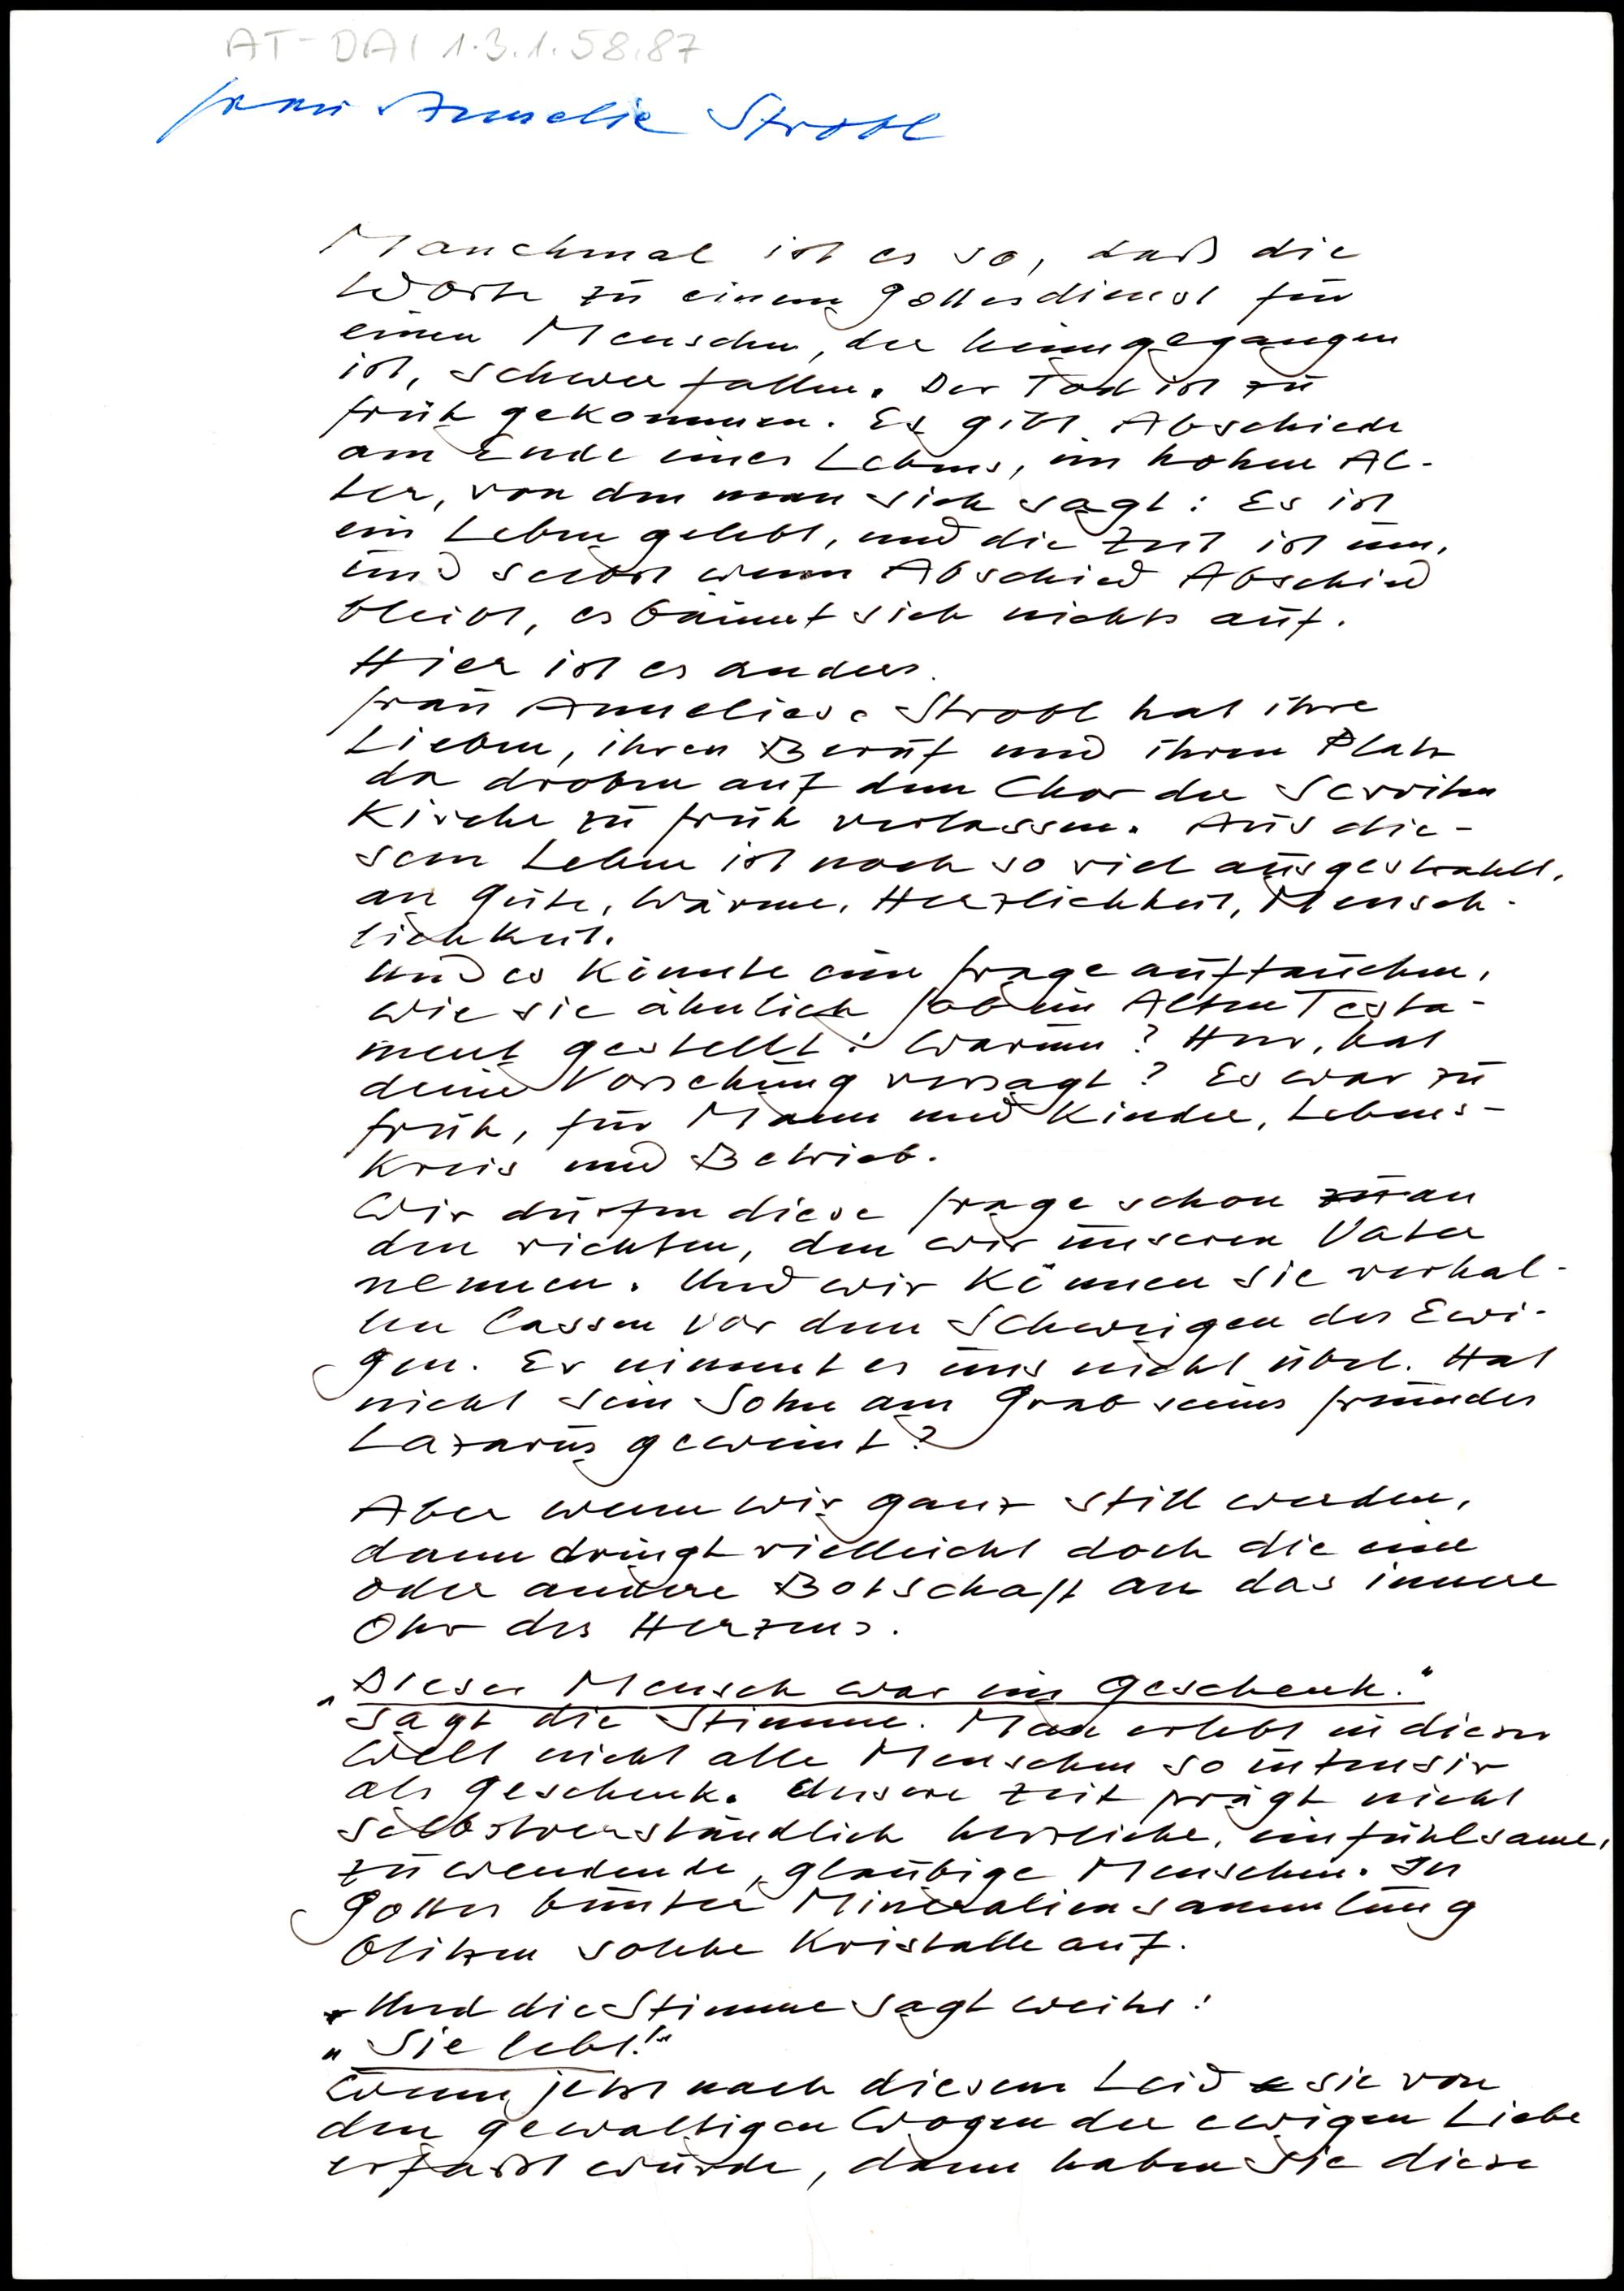 AT-DAI 1.3.1.58.87
Frau Annelie Strobl
Manchmal ist es so, daß die
Worte zu einem Gottesdienst für
einen Menschen, der heimgegangen
ist, schwer fallen. Der Tod ist zu
früh gekommen. Es gibt Abschiede
am Ende eines Lebens, im hohen Al-
ter, von dem man sich sagt: Es ist
ein Leben gelebt, und die Zeit ist um,
und selbst wenn Abschied Abschied
bleibt, es bäumt sich nichts auf.
Hier ist es anders.
Frau Anneliese Strobl hat ihre
Lieben, ihren Beruf und ihren Platz
da droben auf dem Chor der Serviten
Kirche zu früh verlassen. Aus die-
sem Leben ist noch so viel ausgestrahlt,
an Güte, Wärme, Herzlichkeit, Mensch-
lichkeit.
Und es könnte eine Frage auftauchen,
wie sie ähnlich Job im Alten Testa-
ment gestellt: Warum? Herr, hat
deine Vorsehung versagt? Es war zu
früh, für Mann und Kinder, Lebens-
kreis und Betrieb.
Wir dürfen diese Frage schon zu an
den richten, den wir unseren Vater
nennen. Und wir können sie verhal-
len lassen vor dem Schweigen des Ewi-
gen. Er nimmt es uns nicht übel. Hat
nicht sein Sohn am Grab seines Freundes
Lazarus geweint?
Aber wenn wir ganz still werden,
dann dringt vielleicht doch die eine
oder andere Botschaft an das innere
Ohr des Herzens.
„Dieser Mensch war ein Geschenk."
sagt die Stimme. Man erlebt in dieser
Welt nicht alle Menschen so intensiv
als Geschenk. Unsere Zeit prägt nicht
selbstverständlich herzliche, einfühlsame,
zuwendende, gläubige Menschen. In
Gottes bunter Mineraliensammlung
blitzen solche Kristalle auf.
Und die Stimme sagt weiter:
„Sie lebt!"
Wenn jetzt nach diesem Leid sie von
den gewaltigen Wogen der ewigen Liebe
erfaßt wurde, dann haben Sie diese